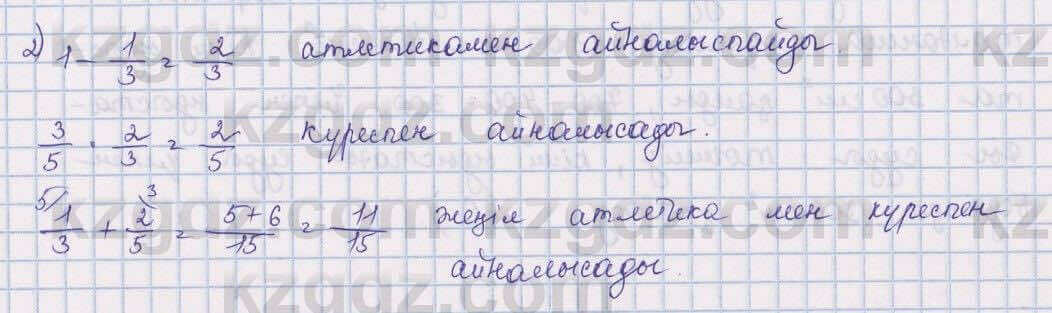 2) 1 - 1/3 = 2/3 атлетикамен айналыспайды.
3/5 · 2/3 = 2/5 күреспен айналысады.
5/ 1/3 + 2/5 \3 = 5+6/15 = 11/15 жеңіл атлетика мен күреспен
айналысады.